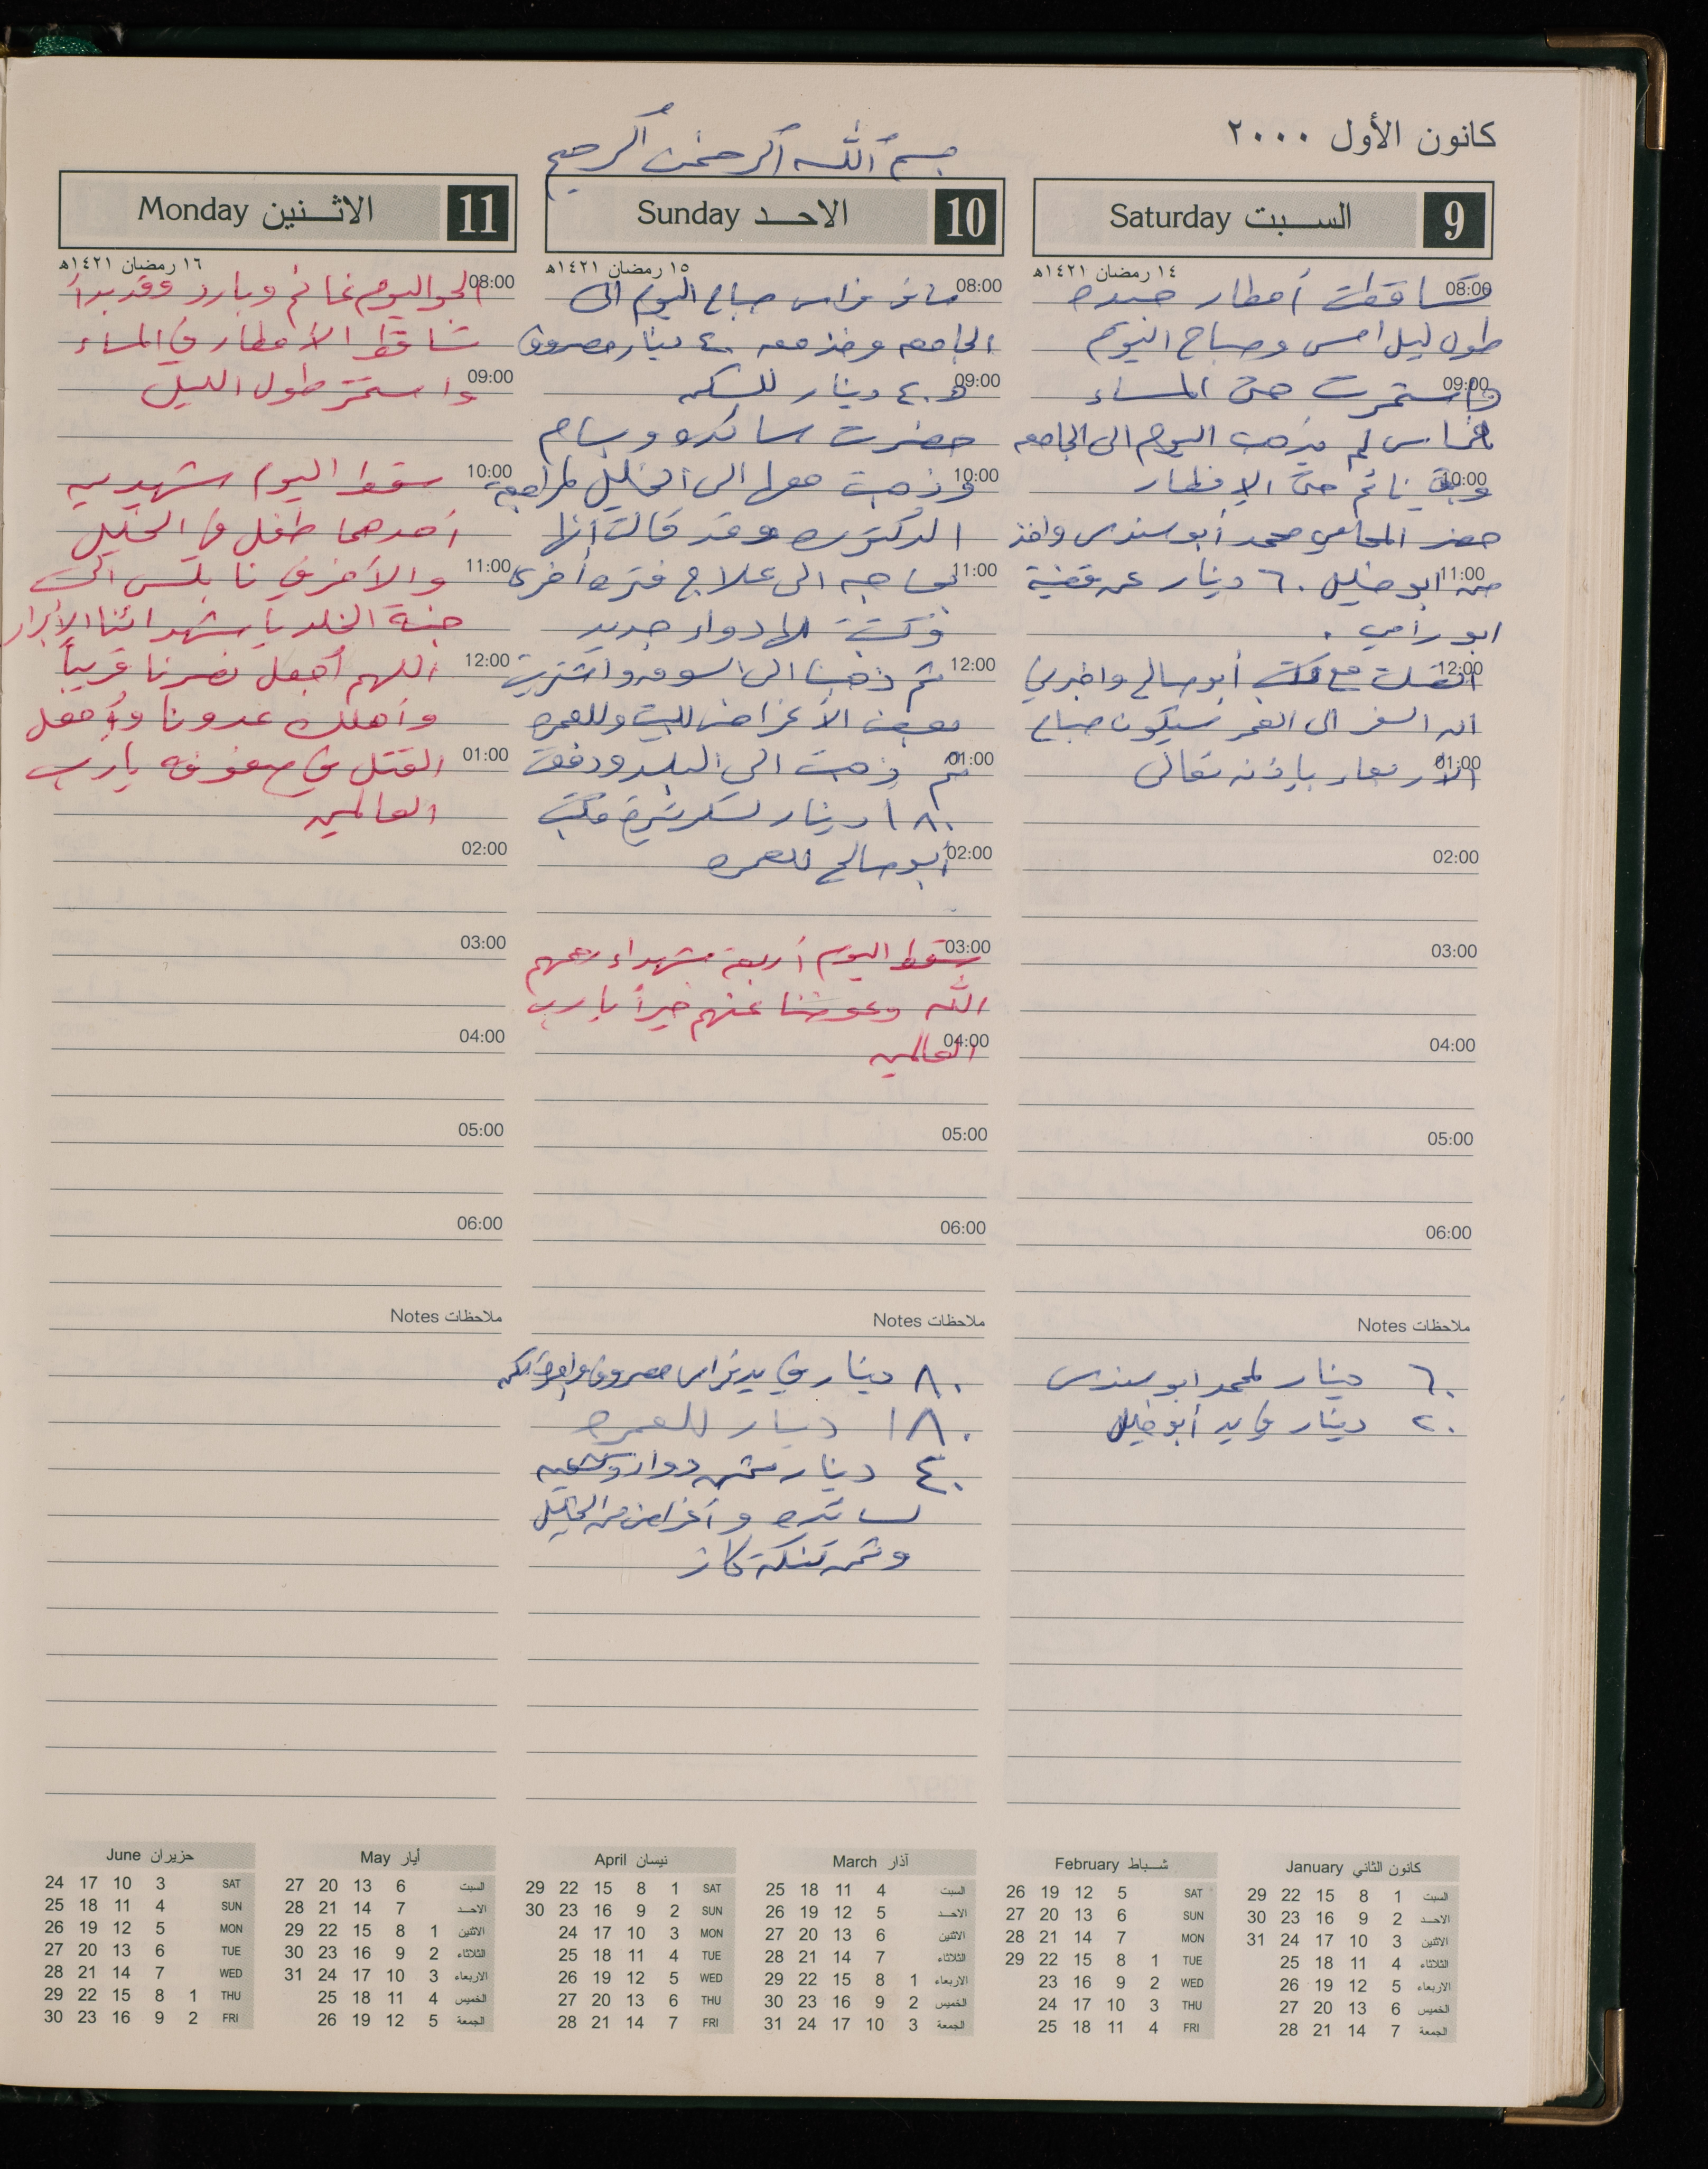 كانون الأول ٢٠٠٠
بسم الله الرحمن الرحيم
9 السبت Saturday
١٤ رمضان ١٤٢١هـ
08:00 تساقطت أمطار جيده
طول ليل امس وصباح اليوم
09:00 واستمرت حتى المساء
فراس لم يذهب اليوم الى الجامعه
10:00 وبقي نائم حتى الافطار
حضر المحامي محمد أبو سندس واخذ
11:00 من ابو خليل ٦٠ دينار عن قضية
ابو رامي .
12:00 اتصلت مع مكتب أبو صالح واخبرني
ان السفر الى العمره سيكون صباح
01:00 الاربعاء بإذنه تعالى
02:00
03:00
04:00
05:00
06:00
ملاحظات Notes
٦٠ دينار لمحمد ابو سندس
٢٠ دينار في يد أبو خليل
10 الاحد Sunday
١٥ رمضان ١٤٢١هـ
08:00 سافر فراس صباح اليوم الى
الجامعه وخذ معه ٤٠ دينار مصروف
09:00 و ٤٠ دينار للسكن
حضرت سائده ووسام
10:00 وذهبت معها الى الخليل لمراجعة
الدكتوره وقد قالت أنها
11:00 بحاجه الى علاج فتره أخرى
وكتبت لها دواء جديد
12:00 ثم ذهبنا الى السوق واشتريت
بعض الأغراض للبيت وللعمره
01:00 ثم ذهبت الى البلد ودفعت
١٨٠ دينار لسكرتيرة مكتب
02:00 أبو صالح للعمره
03:00 سقط اليوم أربعة شهداء رحمهم
الله وعوضنا عنهم خيراً يا رب
04:00 العالمين
05:00
06:00
ملاحظات Notes
٨٠ دينار في يد فراس مصروف واجرة سكن
١٨٠ دينار للعمره
٤٠ دينار ثمن دواء وكشفيه
لسائده وأغراض من الخليل
وثمن تنكة كاز
11 الاثنين Monday
١٦ رمضان ١٤٢١هـ
08:00 الجو اليوم غائم وبارد وقد بدأ
تساقط الأمطار في المساء
09:00 واستمر طول الليل
10:00 سقط اليوم شهيدين
أحدهما طفل في الخليل
11:00 والأخر في نابلس الى
جنة الخلد يا شهدائنا الأبرار
12:00 اللهم أجعل نصرنا قريباً
وأهلك عدونا وأجعل
01:00 القتل في صفوفه يا رب
العالمين
02:00
03:00
04:00
05:00
06:00
ملاحظات Notes
كانون الثاني January
السبت 1 8 15 22 29
الاحد 2 9 16 23 30
الاثنين 3 10 17 24 31
الثلاثاء 4 11 18 25
الاربعاء 5 12 19 26
الخميس 6 13 20 27
الجمعة 7 14 21 28
شباط February
SAT 5 12 19 26
SUN 6 13 20 27
MON 7 14 21 28
TUE 1 8 15 22 29
WED 2 9 16 23
THU 3 10 17 24
FRI 4 11 18 25
آذار March
السبت 4 11 18 25
الاحد 5 12 19 26
الاثنين 6 13 20 27
الثلاثاء 7 14 21 28
الاربعاء 1 8 15 22 29
الخميس 2 9 16 23 30
الجمعة 3 10 17 24 31
نيسان April
SAT 1 8 15 22 29
SUN 2 9 16 23 30
MON 3 10 17 24
TUE 4 11 18 25
WED 5 12 19 26
THU 6 13 20 27
FRI 7 14 21 28
أيار May
السبت 6 13 20 27
الاحد 7 14 21 28
الاثنين 1 8 15 22 29
الثلاثاء 2 9 16 23 30
الاربعاء 3 10 17 24 31
الخميس 4 11 18 25
الجمعة 5 12 19 26
حزيران June
SAT 3 10 17 24
SUN 4 11 18 25
MON 5 12 19 26
TUE 6 13 20 27
WED 7 14 21 28
THU 1 8 15 22 29
FRI 2 9 16 23 30